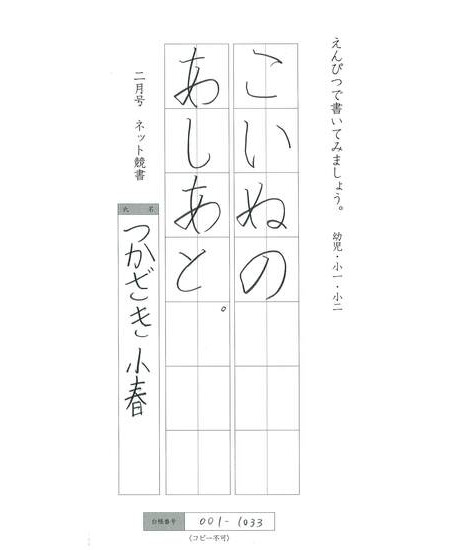 えんぴつで書いてみましょう。 幼児・小一・小二
こいぬの
あしあと。
二月号 ネット競書
氏名
つかざき小春
台帳番号 001-1033
(コピー不可)